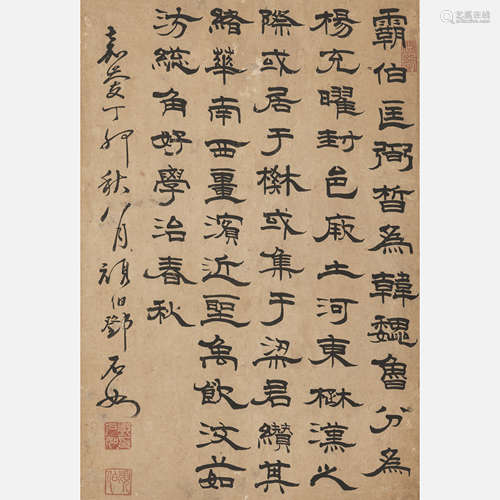 霸伯匡弼晳為韓魏魯分為
楊充曜封邑厥土河東楙漢之
際或居于楙或集于梁君纘其
緒華南西畺濱近聖禹飲汶茹
汸總角好學治春秋
嘉慶丁卯秋八月頑伯鄧石如